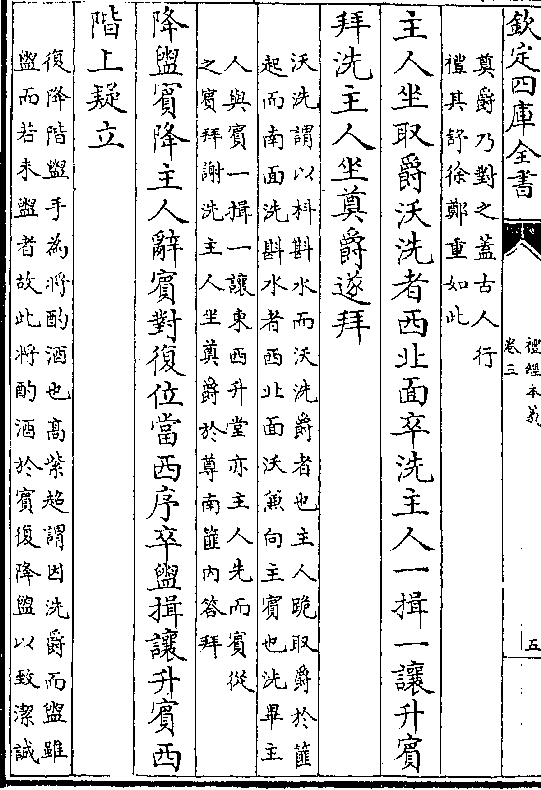 欽定四庫全書
禮經本義
卷三
五
奠爵乃對之蓋古人行
禮其舒徐鄭重如此
主人坐取爵沃洗者西北面卒洗主人一揖一讓升賓
拜洗主人坐奠爵遂拜
沃洗謂以枓㪺水而沃洗爵者也主人跪取爵於篚
起而南面洗㪺水者西北面沃兼向主賓也洗畢主
人與賓一揖一讓東西升堂亦主人先而賓從
之賓拜謝洗主人坐奠爵於尊南篚內答拜
降盥賓降主人辭賓對復位當西序卒盥揖讓升賓西
階上疑立
復降階盥手為將酌酒也高紫超謂因洗爵而盥雖
盥而若未盥者故此將酌酒於賓復降盥以致潔誠